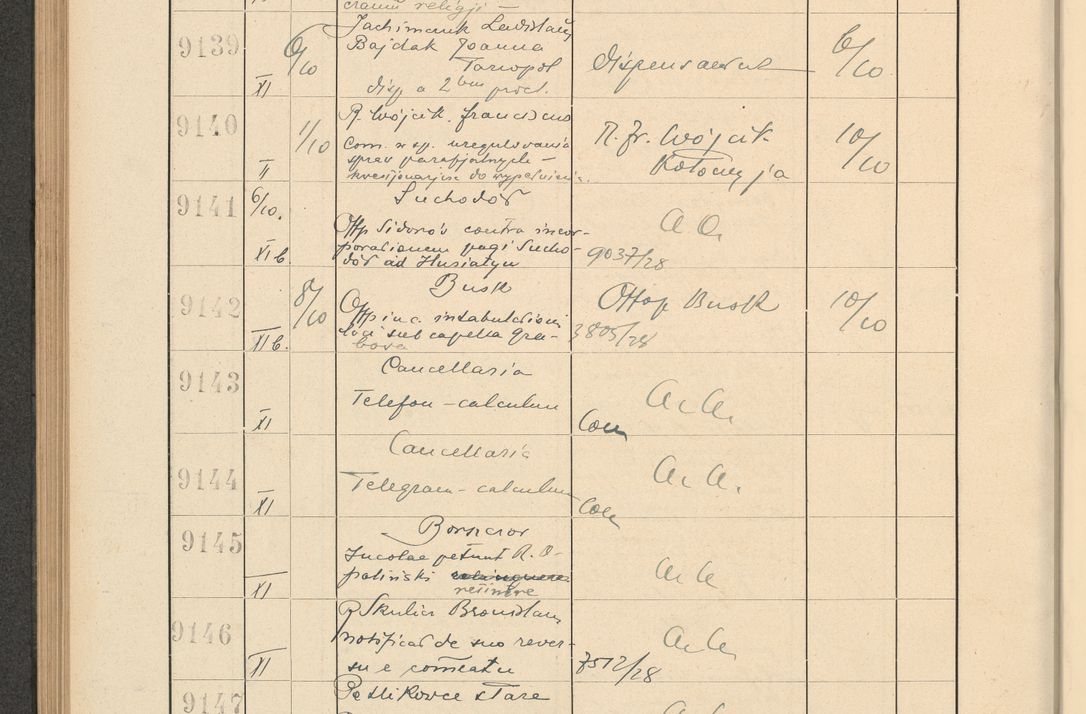 9139 XI 6/10 Jachimczuk Ladislaus
Bajdak Joanna
Tarnopol
disp a 2bus procl.
Dispensavit 6/10
9140 II 1/10 R. Wójcik Franciscus
com. w sp. uregulowania
spraw parafjalnych –
kwestjonarjusz do wypełnienia.
R. Fr. Wójcik
Kołomyja
10/10
9141 6/10. XI b. Suchodół
Offp Sidorów contra incor-
porationem pagi Sucho-
dół ad Husiatyn
A A.
9037/28
9142 XI b. 8/10 Busk
Offp
loci sub capella Gra-
bowa
Offop Busk
3805/28
10/10
9143 XI Cancellaria
Telefon – calculum
A. A.
Com
9144 XI Cancellaria
Telegram – calculum
A. A.
Com
9145 XI
Incolae petunt R. O-
paliński
retinere
A. A.
9146 XI R Skulicz Bronislaus
notificat de suo rever-
su e comeatu
A. A.
7512/28
9147 Petlikowce stare